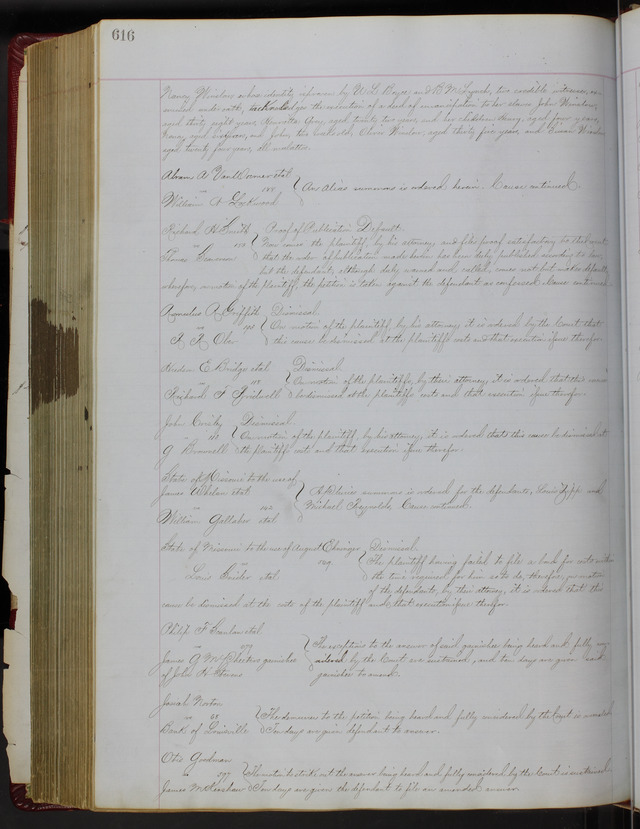 616
Nancy Winslow whose identity is proven by W. L. Boyce and B. M. Lynch, two credible witnesses, ex-
amined under oath, acknowledges the execution of a deed of emancipation to her slaves John Winslow,
aged thirty eight years, Henrietta Jane, aged twenty two years, and her children Henry, aged four years,
Nancy, aged and John, Winslow, aged thirty five years and Winslow
aged twenty four years, all mulattoes.
Abram A Van Wormer etal
vs 188 An Alias summons is ordered herein. Cause continued.
William A Lockwood
Richard H Smith Proof of Publication Default.
vs Now comes the plaintiff, by his attorney and files proof satisfactory to the Court
Thomas that the order of publication made herein has been duly published according to law,
but the defendant, although duly warned and called, comes not but makes default,
wherefore, on motion of the plaintiff, the petition is taken against the defendant as confessed. Cause continued.
Romulus R Griffith Dismissal.
vs On motion of the plaintiff, by his attorney it is ordered by the Court that
this cause be dismissed at the plaintiffs costs and that execution issue therefor.
E Bridge etal Dismissal.
vs On motion of the plaintiffs, by their attorney, it is ordered that this cause
Richard F be dismissed at the plaintiffs costs and that execution issue therefor.
John Dismissal.
vs On motion of the plaintiff, by his attorney, it is ordered that this cause be dismissed at
G Bramwell the plaintiffs costs and that execution issue therefor.
State of Missouri to the use of
James Whelan etal Alias summons is ordered for the defendants, Louis and
vs 142 Michael Reynolds, Cause continued.
William Gallaher etal
State of Missouri to the use of August Ehninger Dismissal.
vs The plaintiff having failed to file a bond for costs within
Louis Snider etal the time required for him so to do, therefore, on motion
of the defendants, by their attorney, it is ordered that this
cause be dismissed at the costs of the plaintiff and that execution issue therefor.
Philip F Scanlan etal
vs The exceptions to the answer of said garnishee being heard and fully con-
James G garnishee sidered by the Court are sustained, and ten days are given said
of John garnishee to amend.
Norton
vs The demurrer to the petition being heard and fully considered by the Court is overruled
Bank of Louisville Ten days are given defendant to answer.
Otis Goodman
vs 597 The motion to strike out the answer being heard and fully considered by the Court is sustained
James M Kershaw Ten days are given the defendant to file an amended answer.